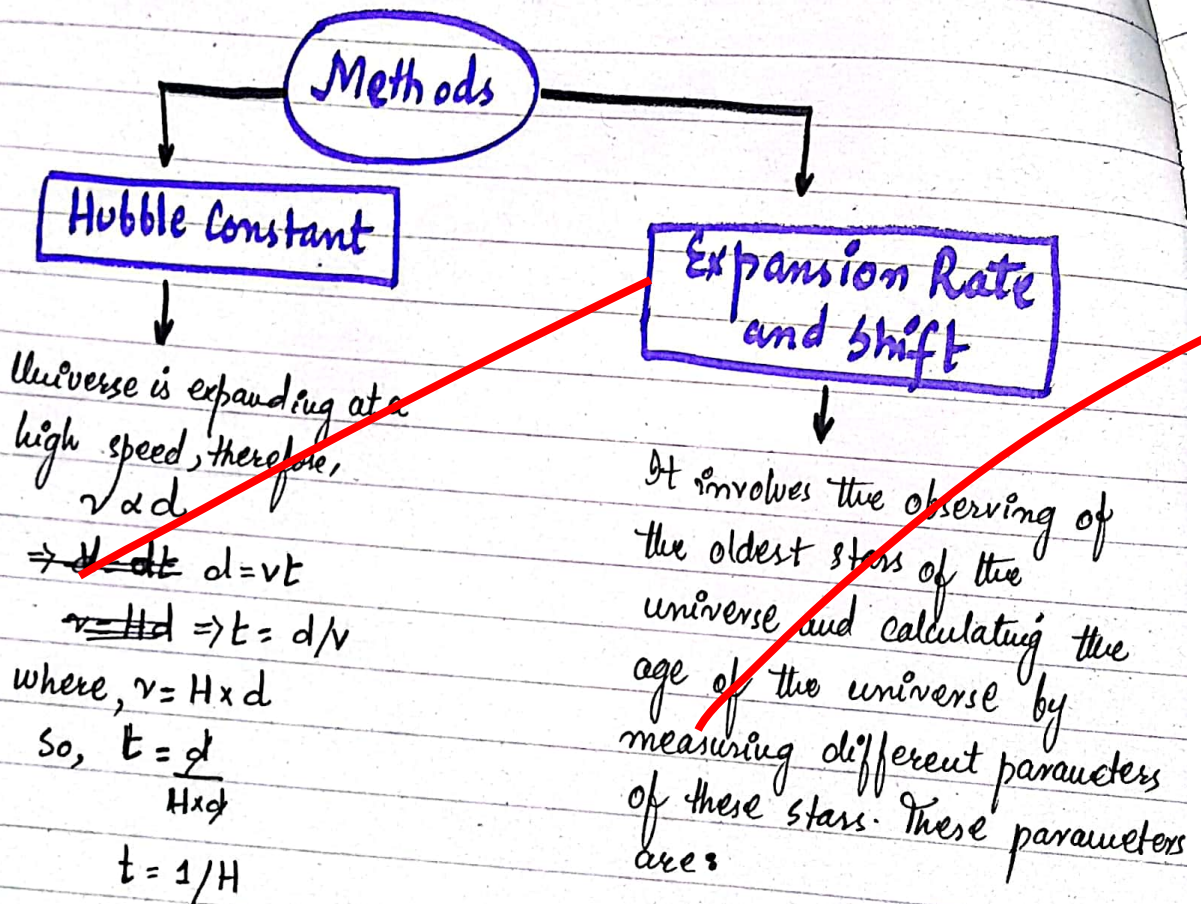 Methods
Hubble Constant
Universe is expanding at a
high speed, therefore,
v ∝ d
⇒ d = vt
⇒ t = d/v
where, v = H x d
So, t = d
H x d
t = 1/H
Expansion Rate
and Shift
It involves the observing of
the oldest stars of the
universe and calculating the
age of the universe by
measuring different parameters
of these stars. These parameters
are: